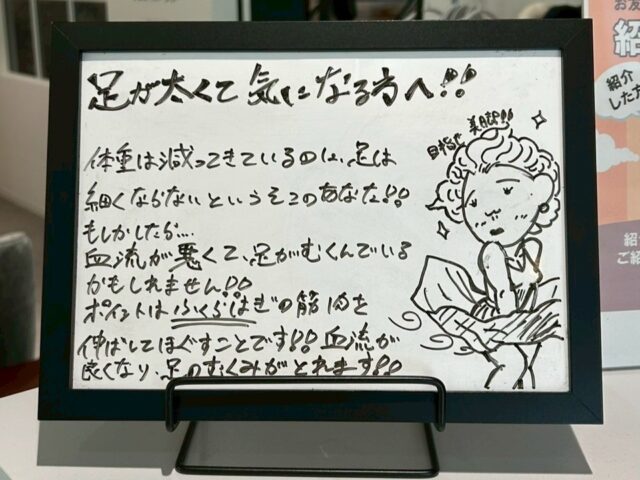 足が太くて気になる方へ!!
目指せ
美脚!!
体重は減ってきているのに、足は
細くならないというそこのあなた!!
もしかしたら…
血流が悪くて、足がむくんでいる
かもしれません!!
ポイントはふくらはぎの筋肉を
伸ばしてほぐすことです!!血流が
良くなり、足のむくみがとれます!!
お友
紹
紹介
した方
紹
ご紹